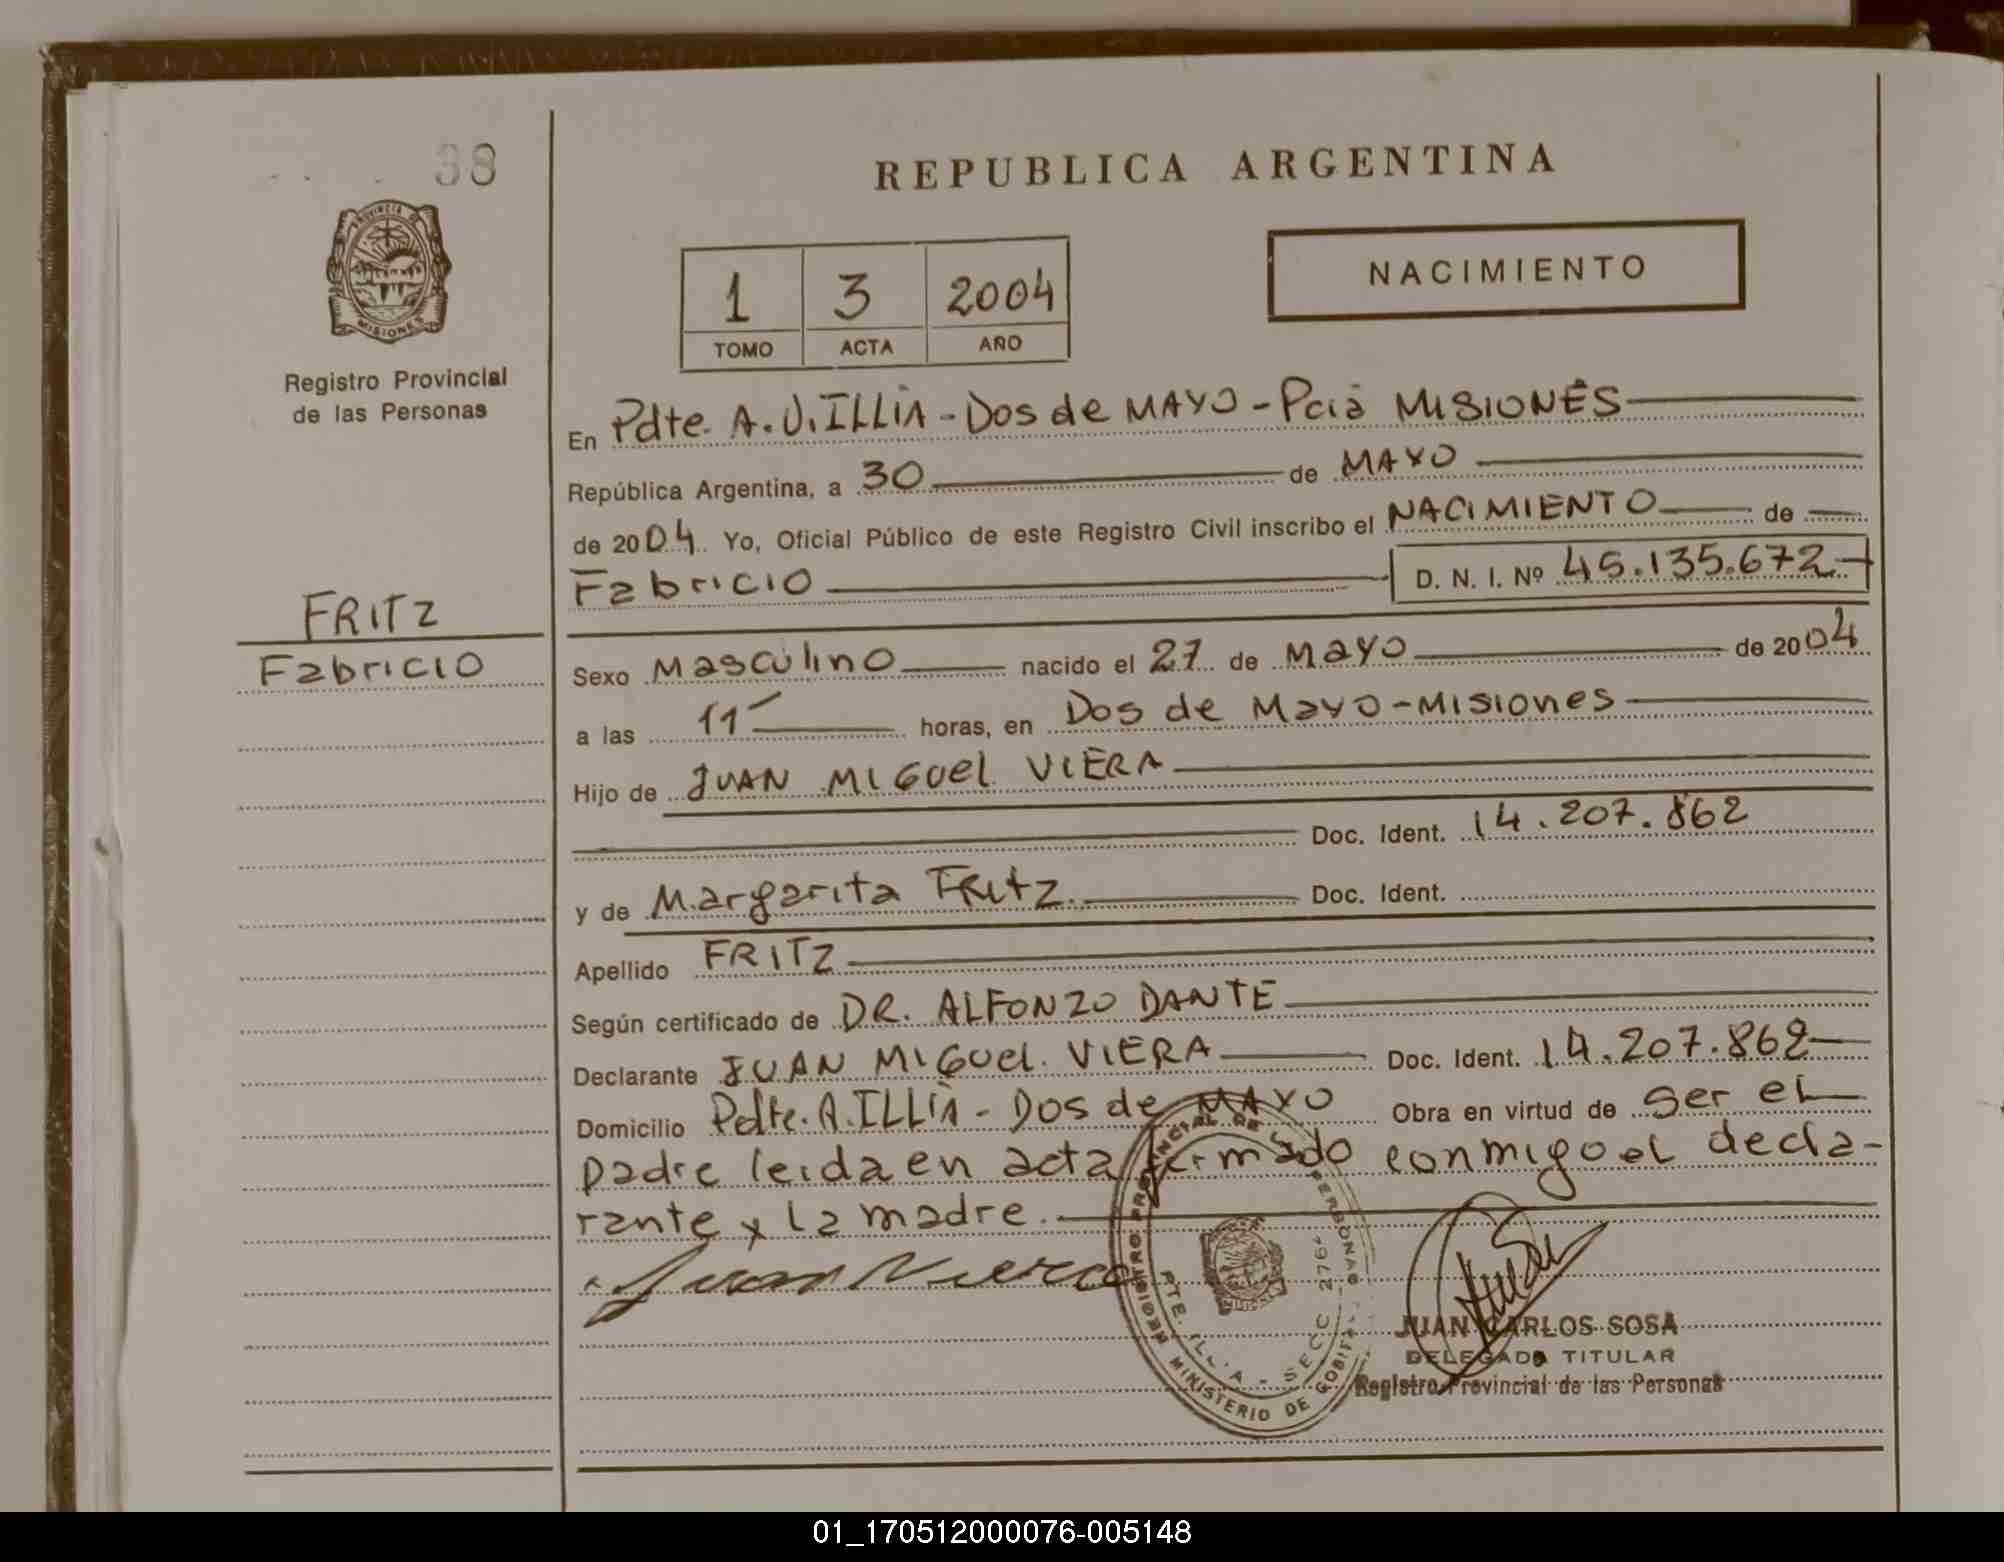 38
PROVINCIA DE
MISIONES
Registro Provincial
de las Personas
FRITZ
Fabricio
REPUBLICA ARGENTINA
1 3 2004
TOMO ACTA AÑO
NACIMIENTO
En Pdte. A. U. ILLIA - Dos de MAYO - Pcia MISIONES
República Argentina, a 30 de MAYO
de 2004. Yo, Oficial Público de este Registro Civil inscribo el NACIMIENTO de
Fabricio D. N. I. Nº 45.135.672
Sexo Masculino nacido el 27 de Mayo de 2004
a las 11 horas, en Dos de Mayo - Misiones
Hijo de JUAN MIGUEL VIERA
Doc. Ident. 14.207.862
y de Margarita Fritz. Doc. Ident.
Apellido FRITZ
Según certificado de DR. ALFONZO DANTE
Declarante JUAN MIGUEL VIERA Doc. Ident. 14.207.862
Domicilio Pdte. A. ILLIA - Dos de MAYO Obra en virtud de ser el
padre leida en acta firmado conmigo el decla-
rante y la madre.
Juan Viera
REGISTRO PROVINCIAL DE PERSONAS
PTE. ILLIA - SECC 276
MINISTERIO DE
JUAN CARLOS SOSA
DELEGADO TITULAR
Registro Provincial de las Personas
01_170512000076-005148